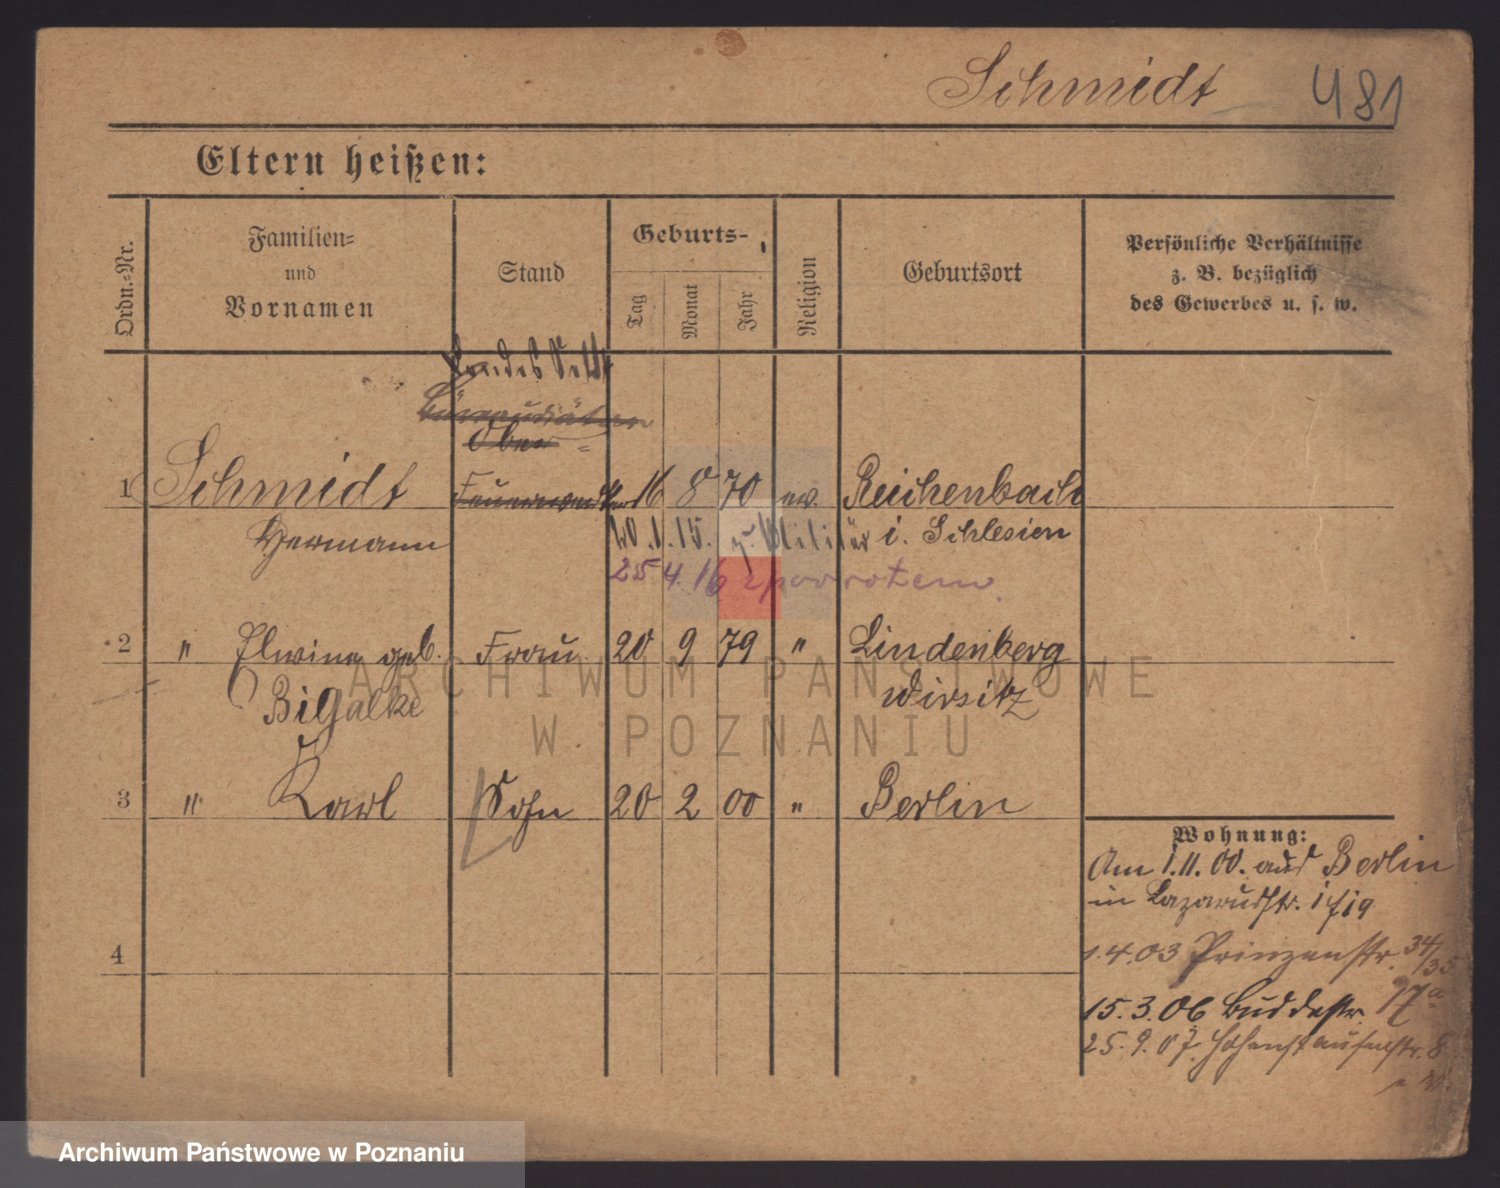 Schmidt 481
Eltern heißen:
Ordn.-Nr.
Familien-
und
Vornamen
Stand
Geburts-
Tag
Monat
Jahr
Religion
Geburtsort
Persönliche Verhältnisse
z. B. bezüglich
des Gewerbes u. s. w.
Bureaudiätar
Ober =
1 Schmidt Feuerwerker 16 8 70 ev. Reichenbach
Hermann 20.1.15. z. Militär i. Schlesien
25 4. 16 z powrotem.
2 " Elwine geb. Frau 20 9 79 " Lindenberg
Bigalke Wirsitz
3 " Karl Sohn 20 2 00 " Berlin
Wohnung:
Am 1.11.00. aus Berlin
in Lazarusstr.
4
1.4.03 Prinzenstr. 34/35
15.3.06 Buddestr. 17a
25.9.07. Hohenstaufenstr. 8
ARCHIWUM PAŃSTWOWE
W POZNANIU
Archiwum Państwowe w Poznaniu